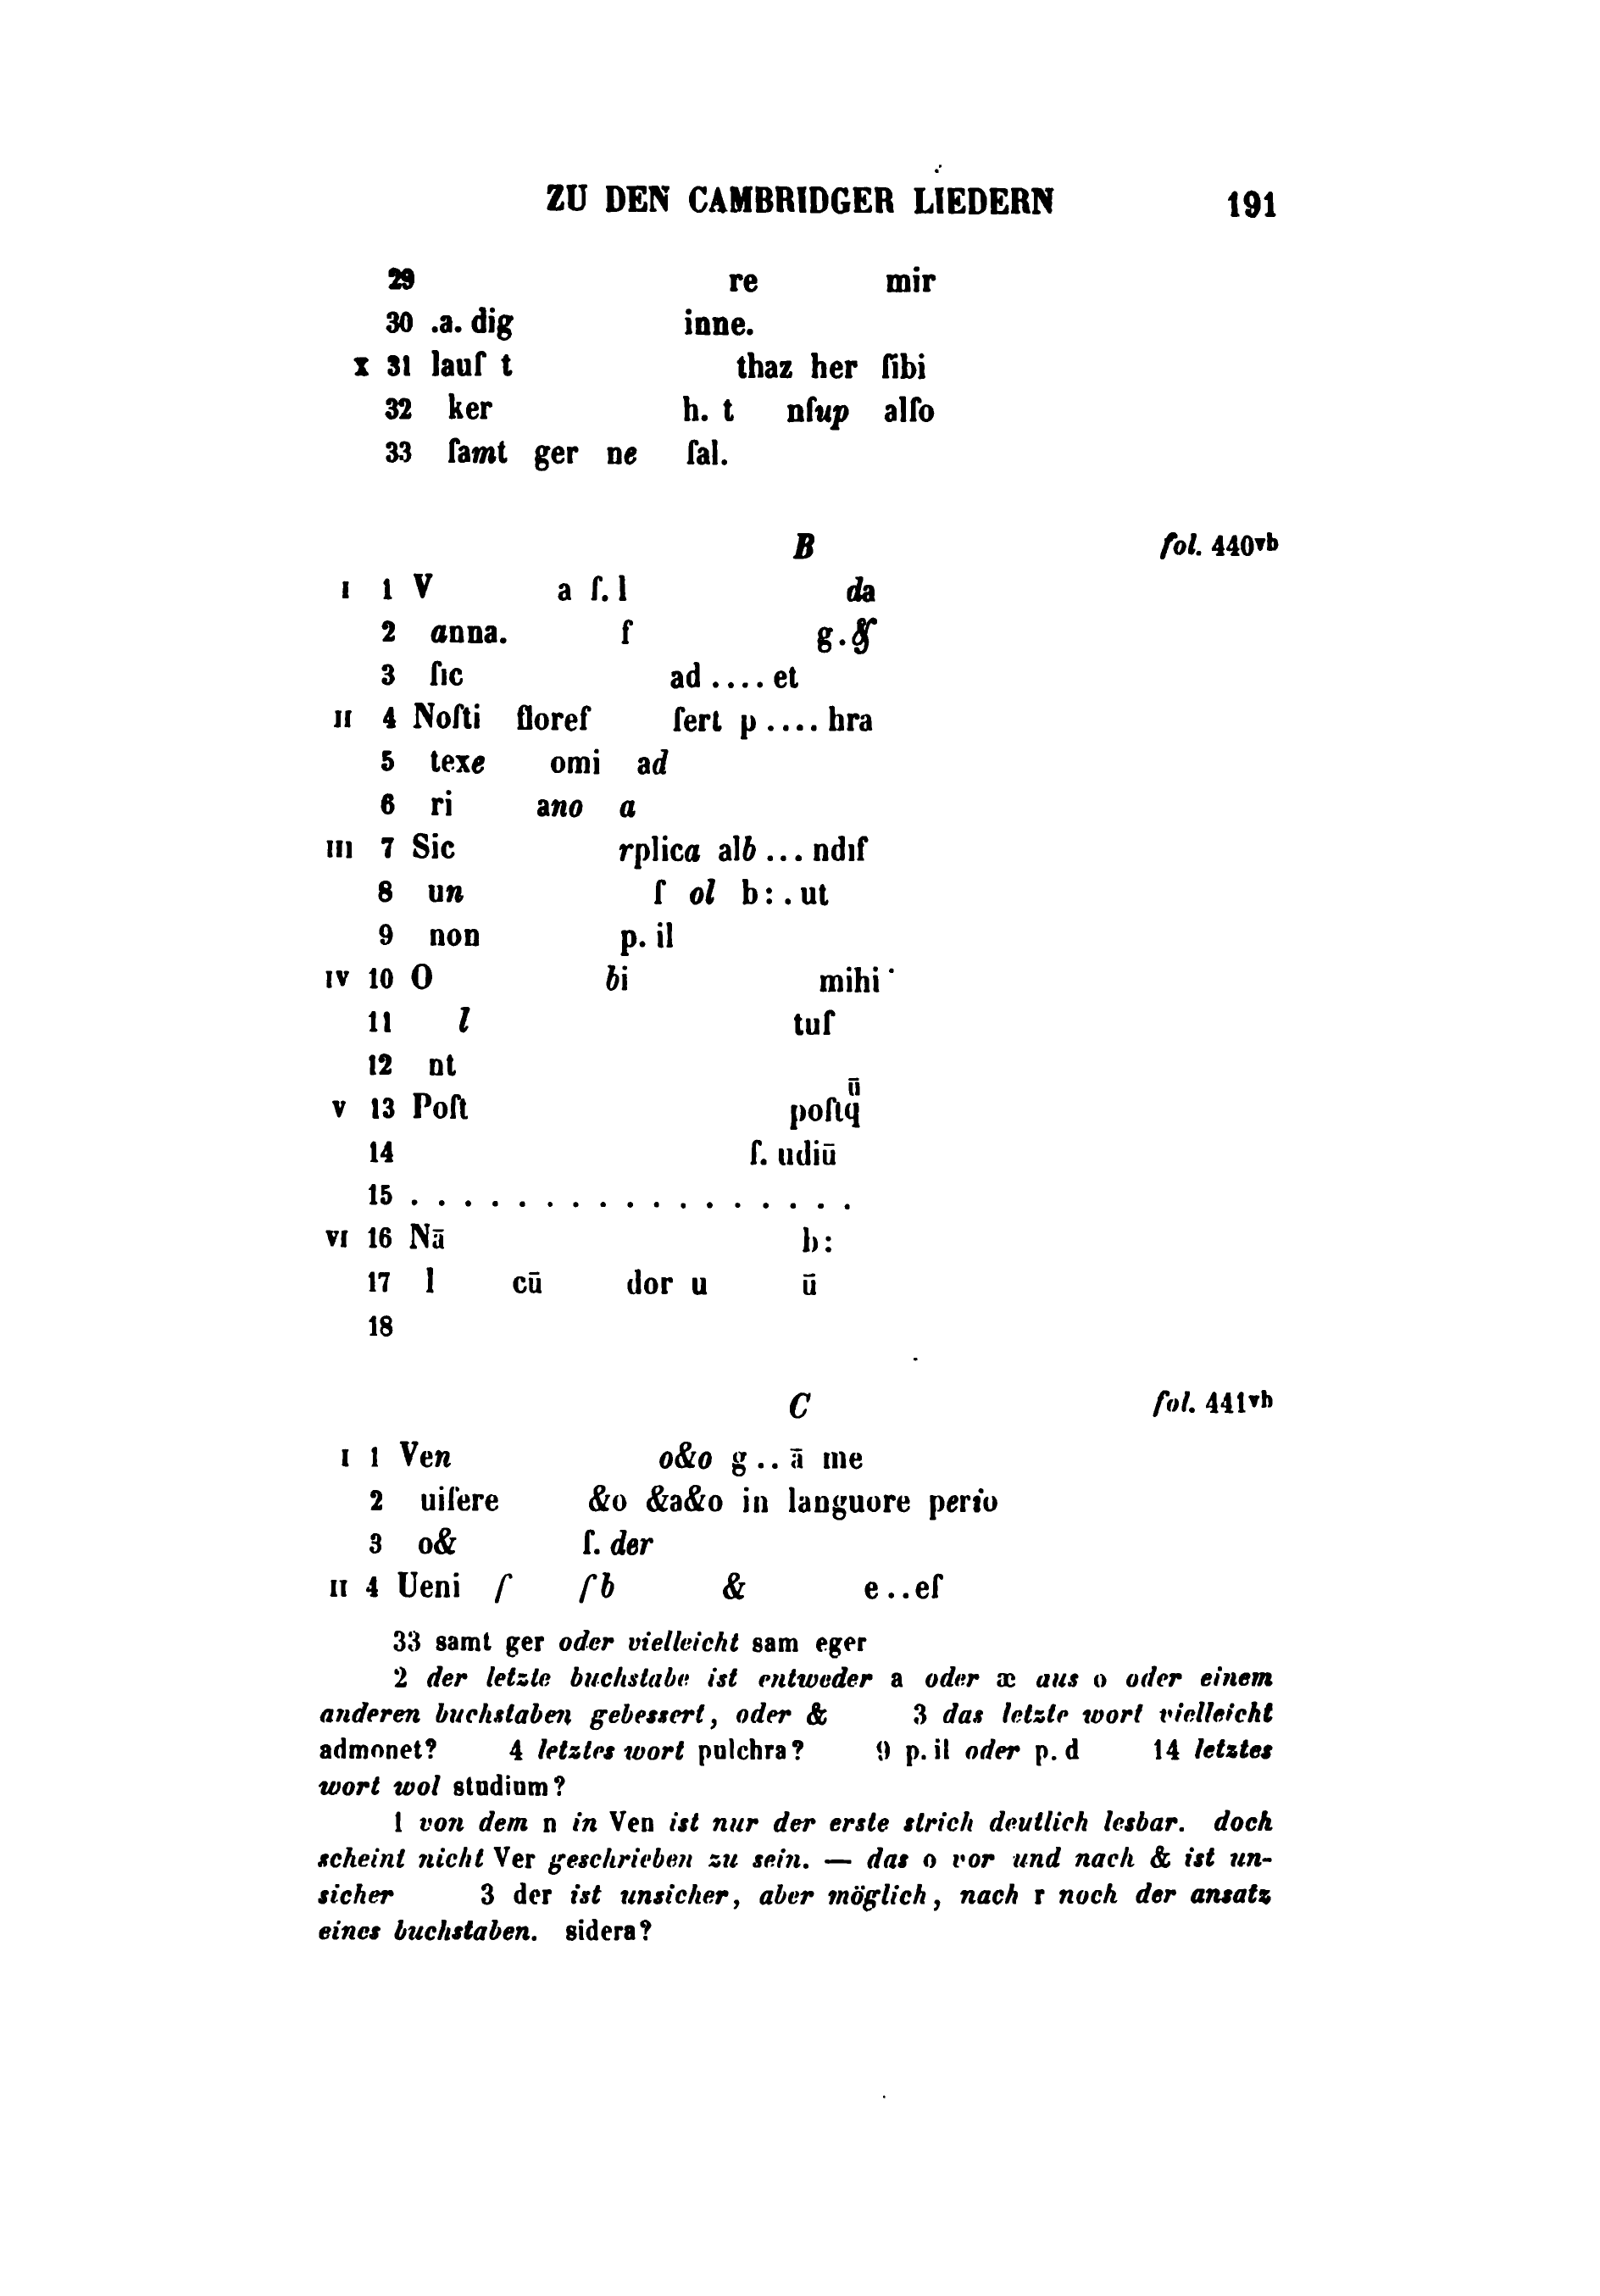 ZU DEN CAMBRIDGER LIEDERN 191
29 re mir
30 .a. dig inne.
X 31 lauſ t thaz her ſibi
32 ker h. t nſup alſo
33 ſamt ger ne ſal.
B fol. 440vb
I 1 V a ſ. l da
2 anna. f g.
3 ſic ad .... et
II 4 Noſti floreſ ſert p .... hra
5 texe omi ad
6 ri ano a
III 7 Sic rplica alb ... ndıſ
8 un ſ ol b: . ut
9 non p. il
IV 10 O bi mihi
11 l tuſ
12 nt
V 13 Poſt poſtq̄ū
14 ſ. udiū
15 . . . . . . . . . . . . . . . . .
VI 16 Nā b:
17 l cū dor u ū
18
C fol. 441vb
I 1 Ven o&o g .. ā me
2 uiſere &o &a&o in languore perio
3 o& ſ. der
II 4 Ueni ſ ſ b & e..eſ
33 samt ger oder vielleicht sam eger
2 der letzte buchstabe ist entweder a oder æ aus o oder einem
anderen buchstaben gebessert, oder & 3 das letzte wort vielleicht
admonet? 4 letztes wort pulchra? 9 p. il oder p. d 14 letztes
wort wol studium?
1 von dem n in Ven ist nur der erste strich deutlich lesbar. doch
scheint nicht Ver geschrieben zu sein. — das o vor und nach & ist un-
sicher 3 der ist unsicher, aber möglich, nach r noch der ansatz
eines buchstaben. sidera?